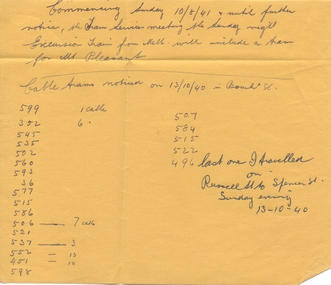 Commencing Sunday 10/8/41 & until further
notice, the tram service meeting the Sunday night
Excursion train from Melb. will include a tram
for Mt Pleasant
Cable trams noticed on 13/10/40 - Bourke St.
599 1 cable
302 6 "
545
535
502
560
593
36
577
515
586
506 — 7 cable
521
537 — 3
552 — 13
451 — 10
598
507
584
515
522
496 last one I travelled
on
Russell St to Spencer St.
Sunday evening
13-10-40